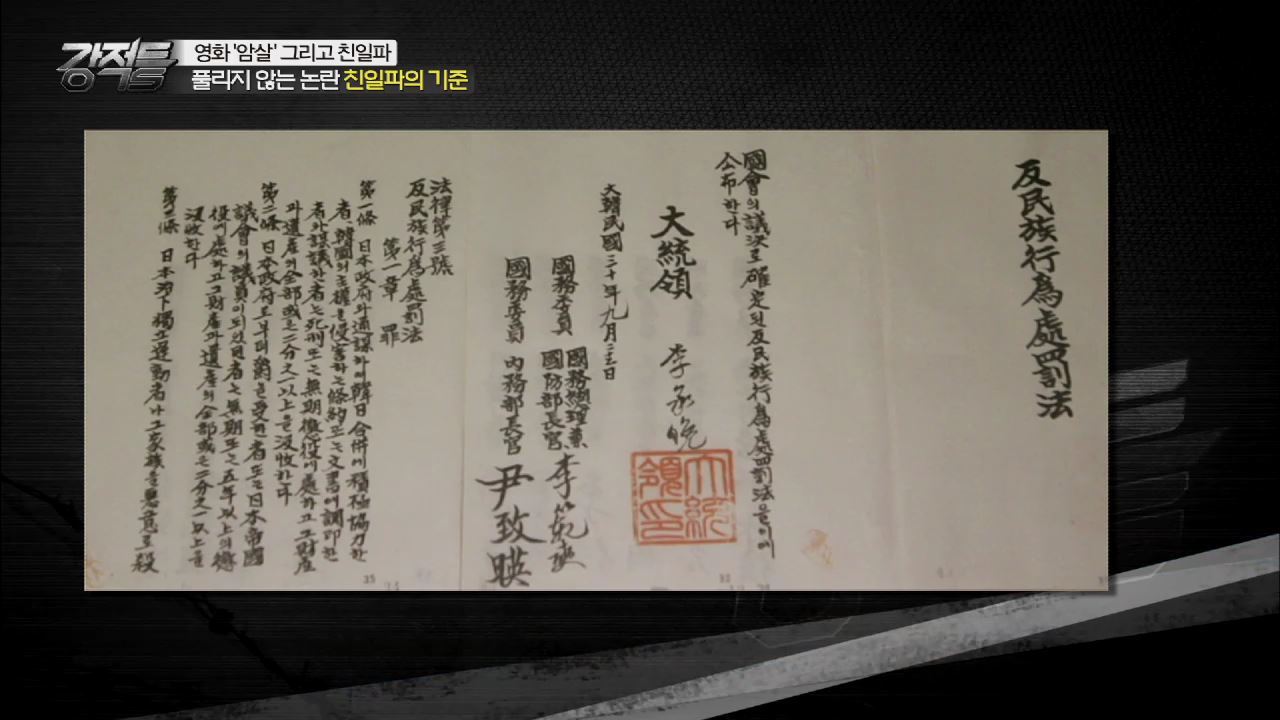 강적들
영화 '암살' 그리고 친일파
풀리지 않는 논란 친일파의 기준
反民族行爲處罰法
國會의 議決로 確定된 反民族行爲處罰法을 이에
公布한다
大統領 李承晩
大統領印
大韓民國三十年九月二十二日
國務委員 國務總理兼
國防部長官 李範奭
國務委員 內務部長官 尹致暎
法律第三號
反民族行爲處罰法
第一章 罪
第一條 日本政府와 通謀하여 韓日合併에 積極協力한
者, 韓國의 主權을 侵害하는 條約 또는 文書에 調印한
者와 謀議한 者는 死刑 또는 無期懲役에 處하고 그 財産
과 遺産의 全部 或은 二分之一 以上을 沒收한다
第二條 日本政府로부터 爵을 受한 者 또는 日本帝國
議會의 議員이 되었던 者는 無期 또는 五年以上의 懲
役에 處하고 그 財産과 遺産의 全部 或은 二分之一 以上을
沒收한다
第三條 日本治下 獨立運動者나 그 家族을 惡意로 殺
35